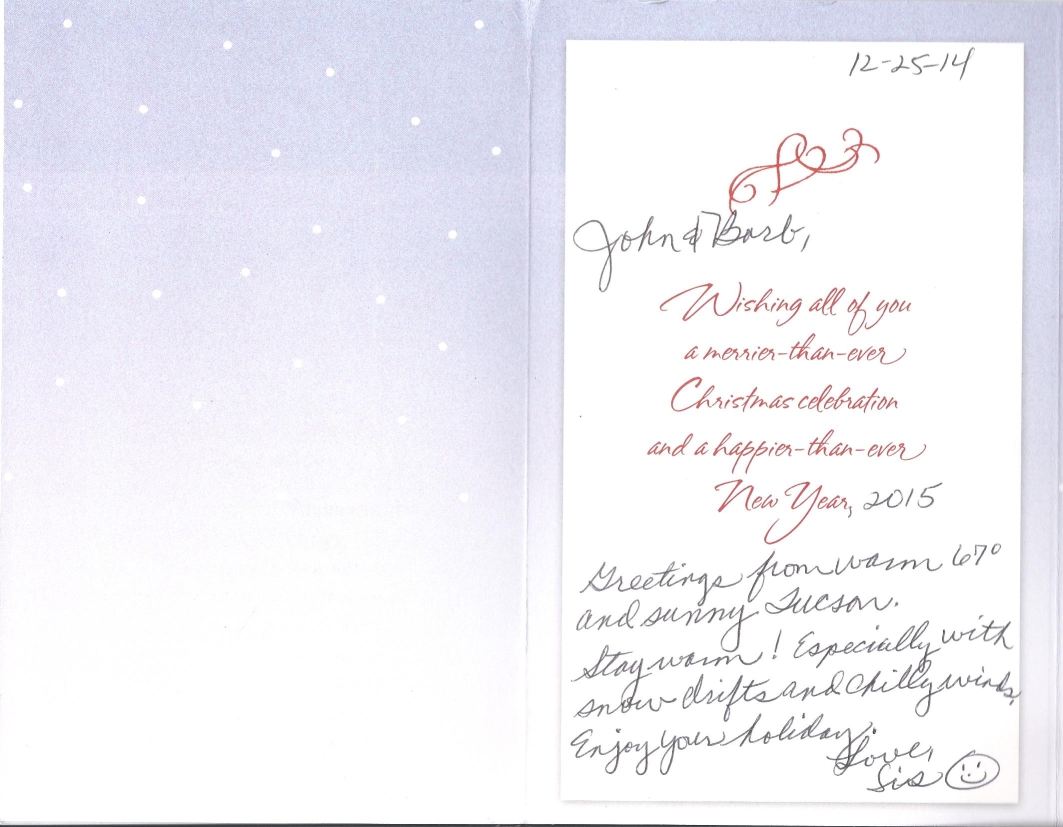 12-25-14
John & Barb,
Wishing all of you
a merrier-than-ever
Christmas celebration
and a happier-than-ever
New Year, 2015
Greetings from warm 67°
and sunny Tucson.
Stay warm! Especially with
snow drifts and chilly winds,
Enjoy your holiday.
Love,
Sis